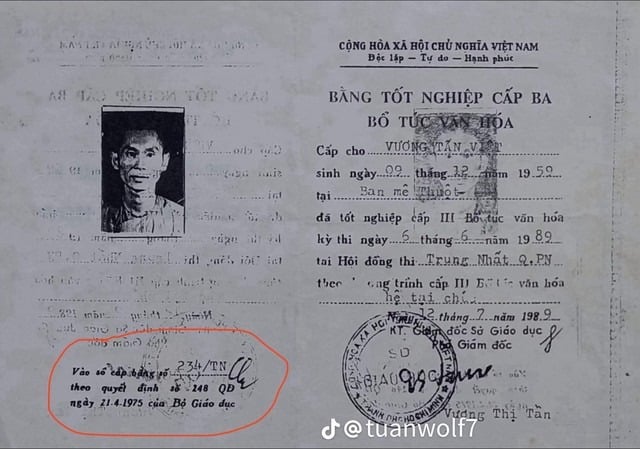 Vào sổ cấp bằng số 234/TN
theo quyết định số 248 QĐ
ngày 21.4.1975 của Bộ Giáo dục
CỘNG HÒA XÃ HỘI CHỦ NGHĨA VIỆT NAM
Độc lập — Tự do — Hạnh phúc
BẰNG TỐT NGHIỆP CẤP BA
BỔ TÚC VĂN HÓA
Cấp cho VƯƠNG TẤN VIỆT
sinh ngày 09 tháng 12 năm 1959
tại Ban mê Thuột
đã tốt nghiệp cấp III Bổ túc văn hóa
kỳ thi ngày 6 tháng 6 năm 1989
tại Hội đồng thi Trung Nhất Q.PN
theo chương trình cấp III Bổ túc văn hóa
hệ tại chức
12 tháng 7 năm 1989
KT. Giám đốc Sở Giáo dục
Phó Giám đốc
SỞ
GIÁO DỤC
THÀNH PHỐ HỒ CHÍ MINH
Vương Thị Tấn
@tuanwolf7